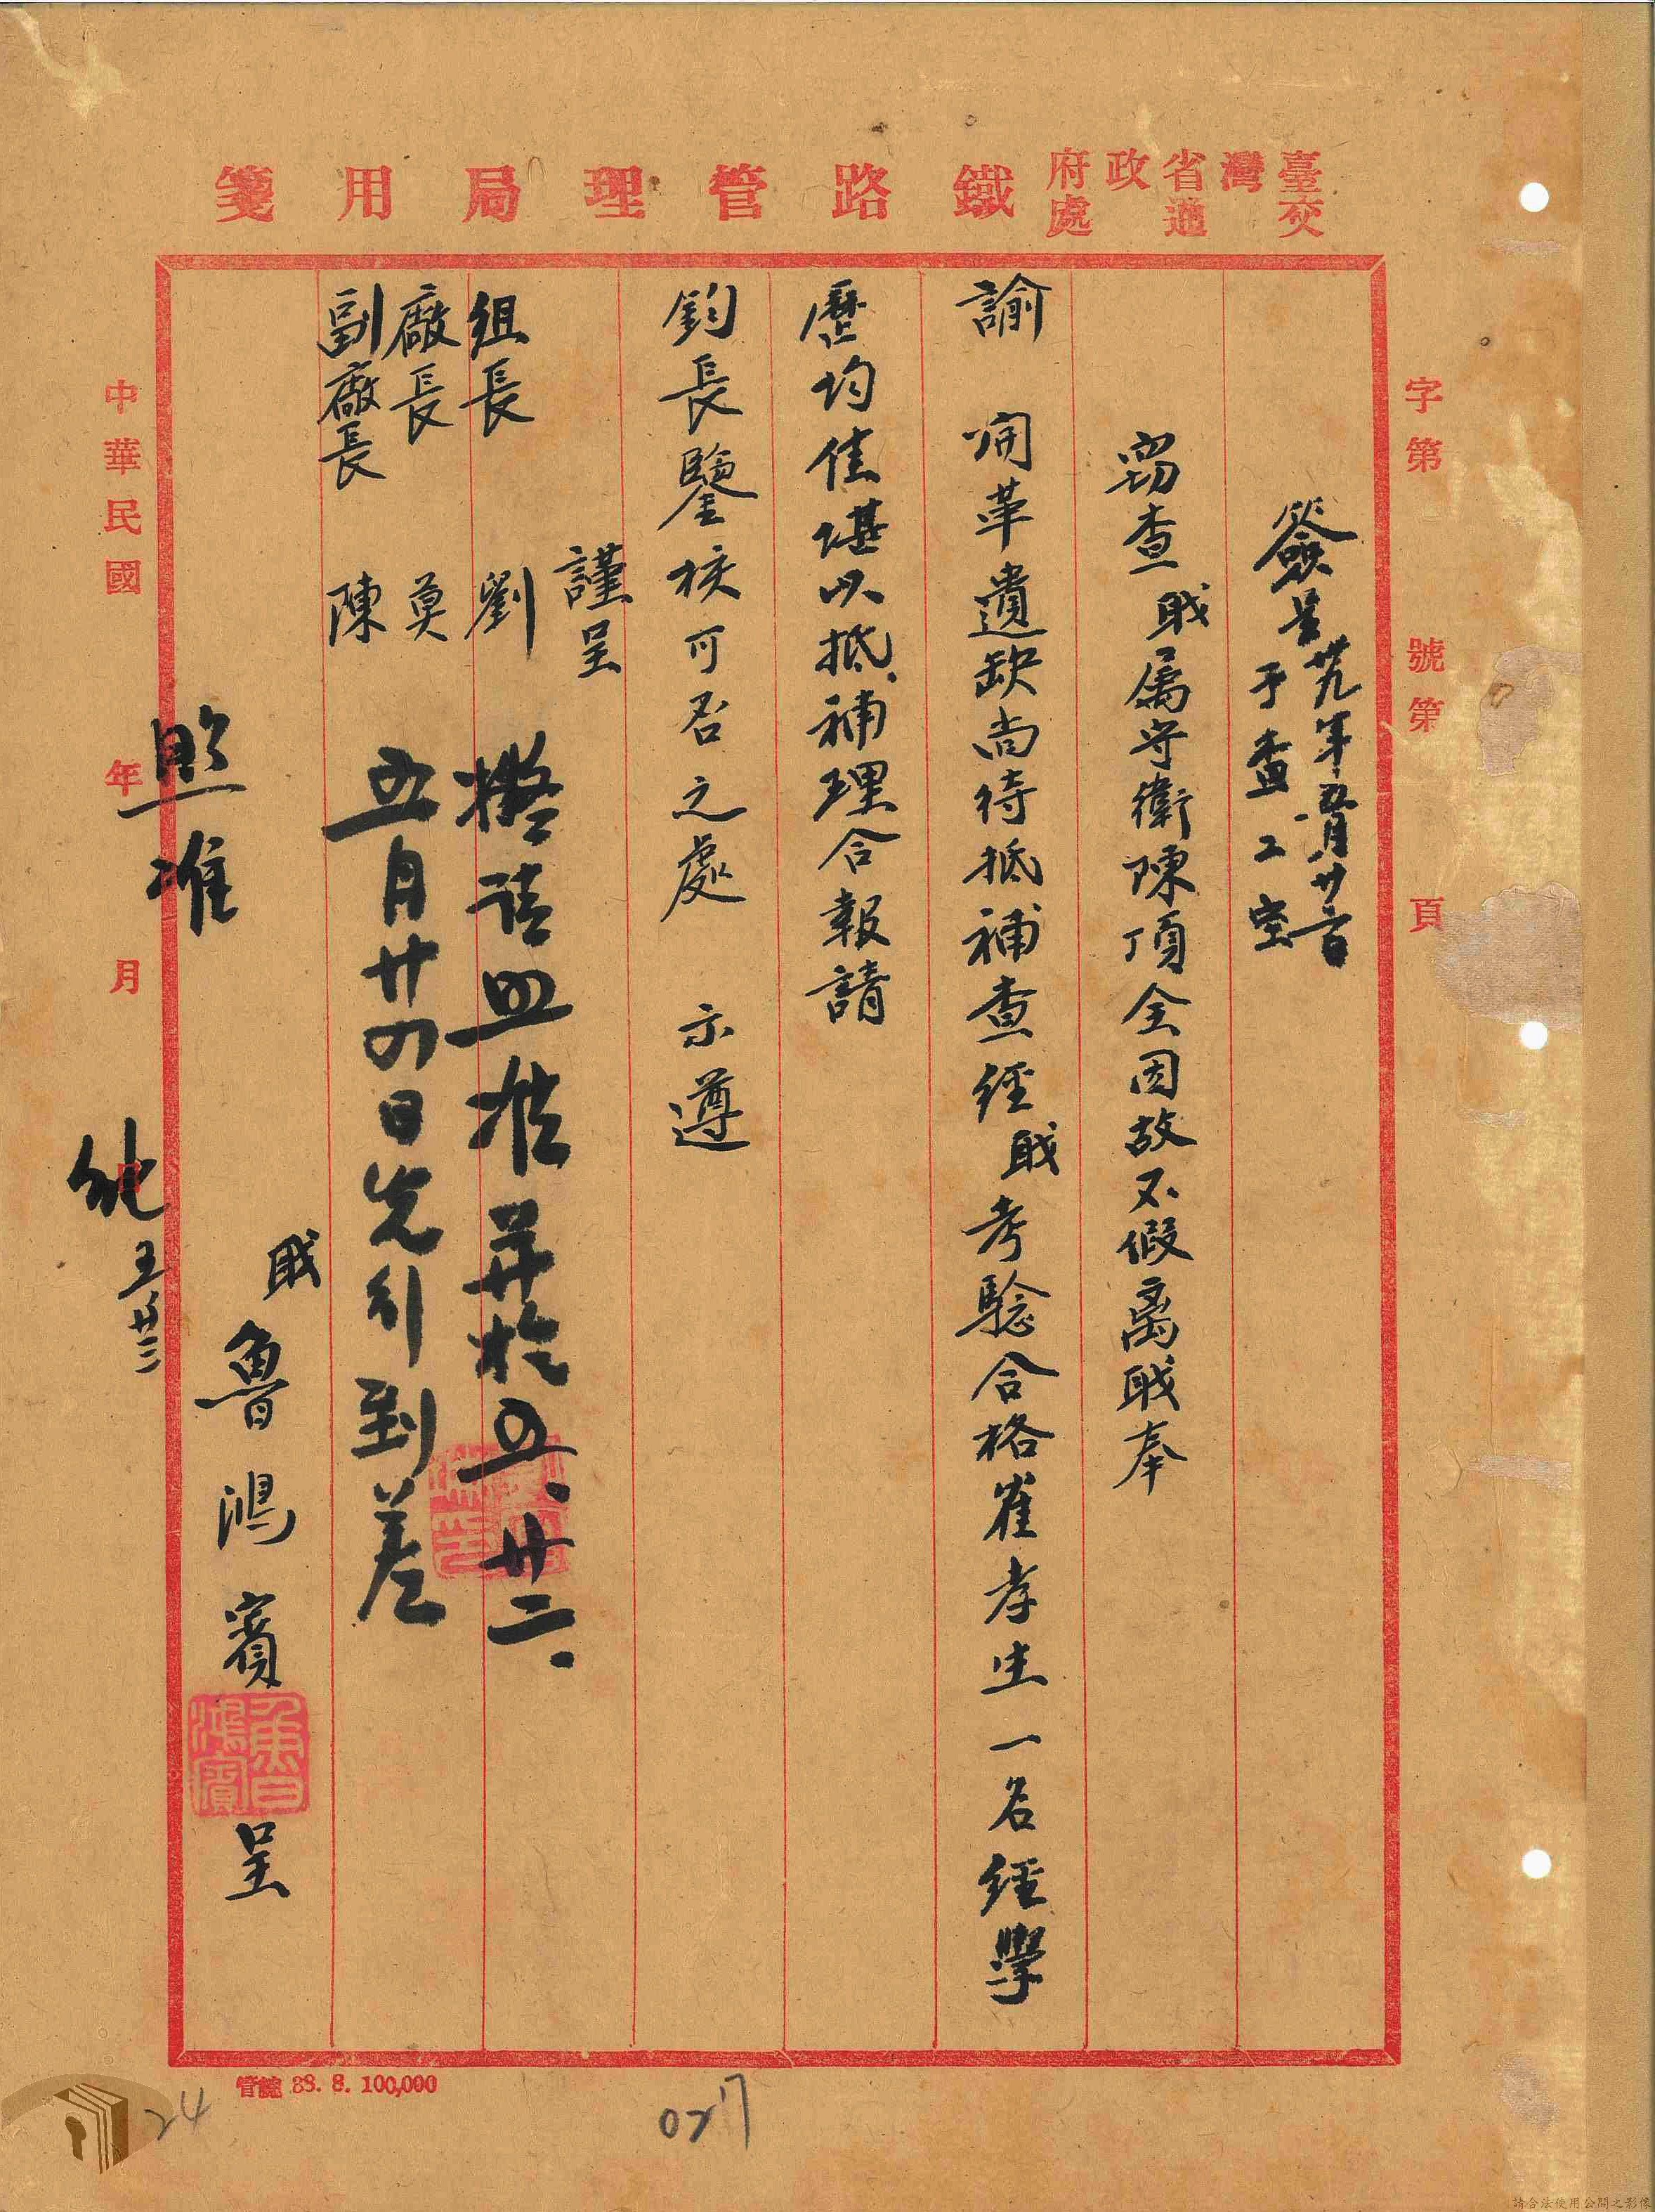 臺灣省政府交通處鐵路管理局用箋
字第 號第 頁
簽呈 卅九年五月廿二日
于查工室
竊查職属守衛陳項全因故不假离職奉
諭 開革遺缺尚待抵補查經職考驗合格崔孝生一名經學
歷均佳堪以抵補理合報請
鈞長鑒核可否之處 示遵
謹呈
組長 劉
廠長 莫
副廠長 陳
擬請照准并於五、廿二、
五月廿四日先行到差
職 魯鴻賓 呈
魯鴻賓
照准
五廿三
中華民國 年 月 日
38. 8. 100,000
24
027
請合法使用公開之影像